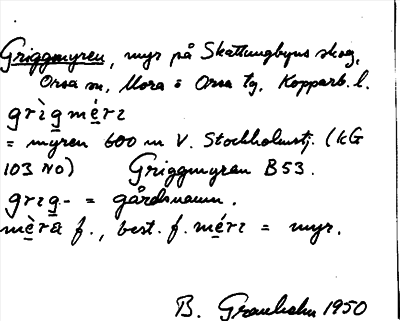 Griggmyren, myr på Skattungbyns skog,
Orsa sn, Mora o Orsa tg, Kopparb. l.
grìgmérɪ
= myren 600 m V. Stockholmstj. (KG
103 NO) Griggmyren B53.
grɪg- = gårdsnamn.
mèra f., best. f. mérɪ = myr.
B. 1950